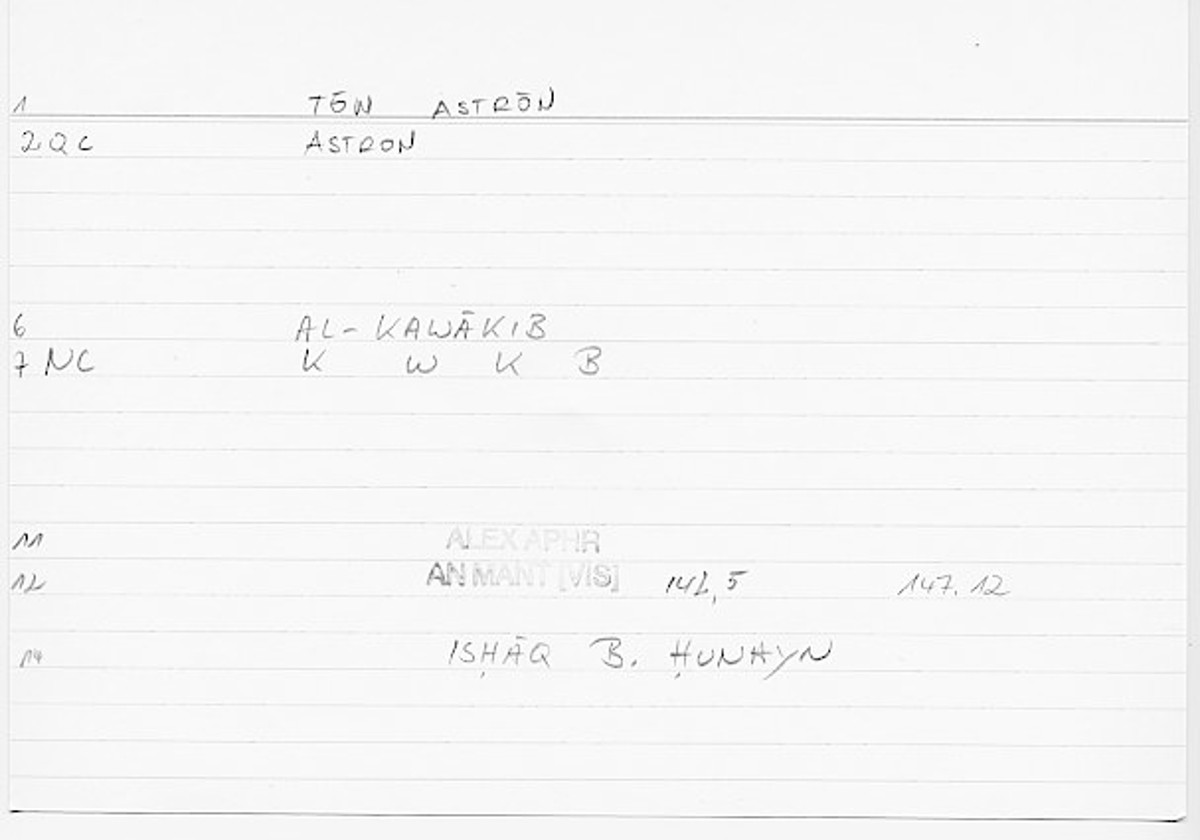 1 TŌN ASTRŌN
2 QC ASTRON
6 AL-KAWĀKIB
7 NC K W K B
11 ALEX APHR
12 AN MANT [VIS] 142,5 147.12
14 ISḤĀQ B. ḤUNAYN